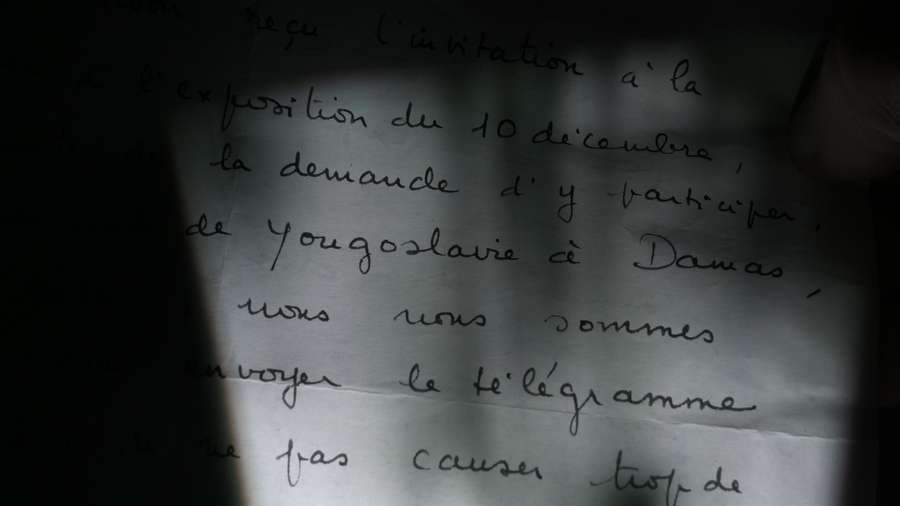 reçu l'invitation à la
l'exposition du 10 décembre,
la demande d'y participer,
de Yougoslavie à Damas,
nous nous sommes
envoyer le télégramme
ne pas causer trop de